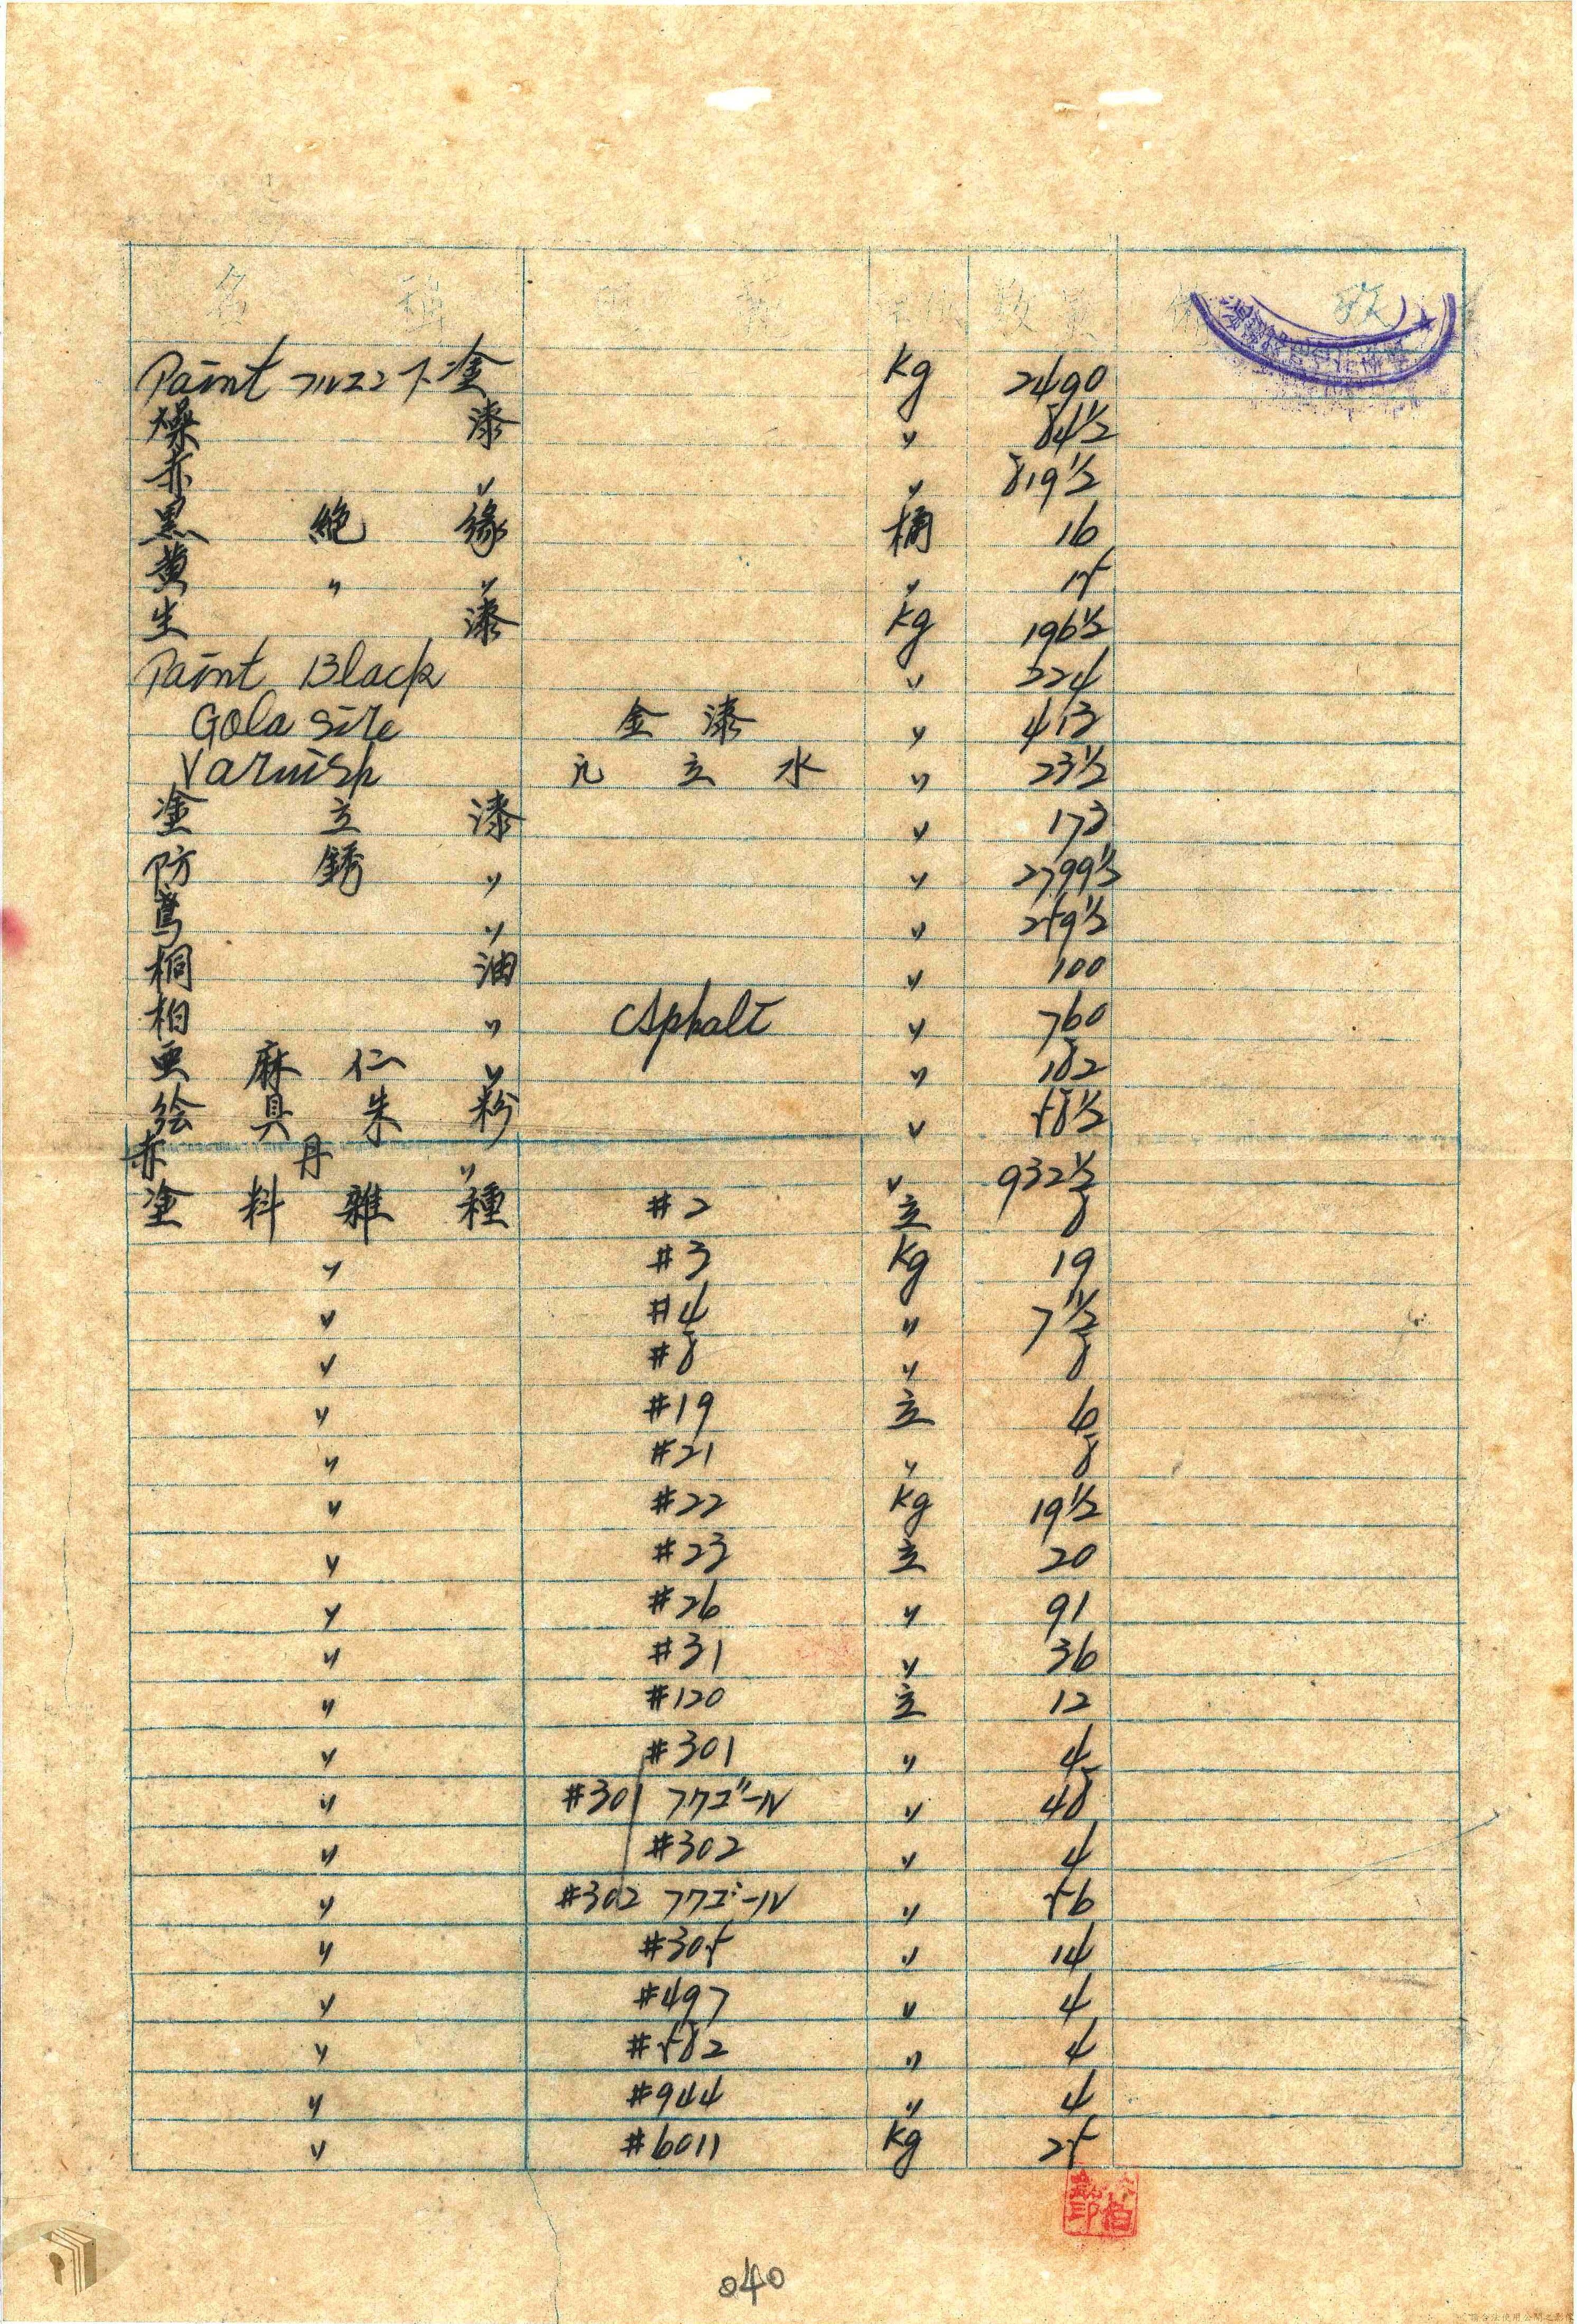 名 稱 數量 備 攷
Paint フルエン下塗 Kg 2490
燥 漆 〃 84½
赤 〃 〃 819½
黒 絶 緣 桶 16
黄 〃 〃 〃 15
生 漆 Kg 196½
Paint Black 〃 224
Gola Size 金 漆 〃 413
Varnish 凡 立 水 〃 23½
塗 立 漆 〃 173
防 銹 〃 〃 2799½
鳶 〃 〃 259½
桐 油 〃 100
柏 〃 Asphalt 〃 760
亜 麻 仁 〃 〃 182
絵 具 朱 粉 〃 58½
赤 丹 〃 〃 932½
塗 料 雜 種 #2 立 8
〃 #3 Kg 19
〃 #4 〃 7½
〃 #8 〃 8
〃 #19 立 6
〃 #21 〃 8
〃 #22 Kg 19½
〃 #23 立 20
〃 #26 〃 91
〃 #31 〃 36
〃 #120 立 12
〃 #301 〃 4
〃 #301 フクゴール 〃 48
〃 #302 〃 4
〃 #302 フクゴール 〃 56
〃 #305 〃 14
〃 #497 〃 4
〃 #582 〃 4
〃 #944 〃 4
〃 #6011 Kg 25
040